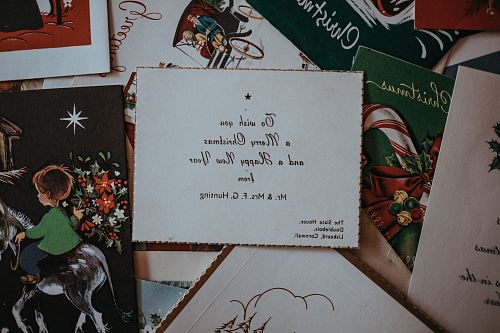 Greetings
Christmas
Christmas
To wish you
a Merry Christmas
and a Happy New Year
from
Mr. & Mrs. F. G. Hunting
The Slate House,
Doublebois,
Liskeard, Cornwall.